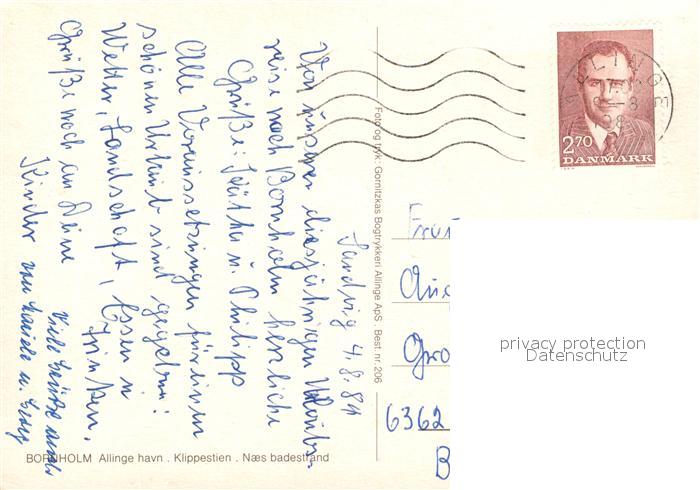 Sandvig 4.8.84
Von unserer diesjährigen Urlaubs-
reise nach Bornholm herzliche
Grüße: Jutta u. Philipp
Alle Voraussetzungen für einen
schönen Urlaub sind gegeben:
Wetter, Landschaft, Essen u
Trinken.
Grüße noch an Deine
Kinder von
Viele Grüße auch
Foto og tryk: Gornitzkas Bogtrykkeri Allinge ApS . Best.nr. 206
ALLINGE
2.70
DANMARK
Frau
Gro
6362
B
privacy protection
Datenschutz
BORNHOLM Allinge havn . Klippestien . Næs badestrand